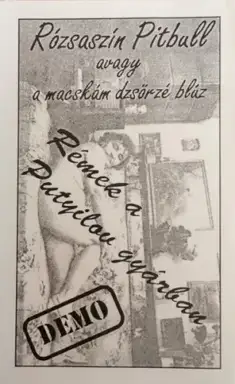 Rózsaszín Pitbull
avagy
a macskám dzsörzé blúz
Rémek a
Putyilov gyárban
DEMO